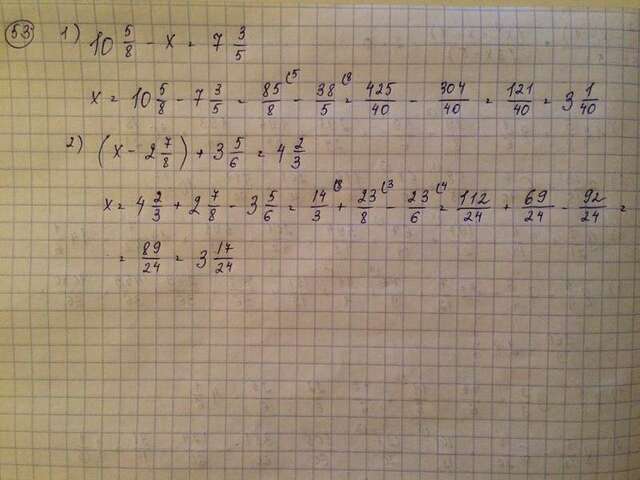 53 1) 10 5/8 - x = 7 3/5
x = 10 5/8 - 7 3/5 = 85/8 (5 - 38/5 (8 = 425/40 - 304/40 = 121/40 = 3 1/40
2) (x - 2 7/8) + 3 5/6 = 4 2/3
x = 4 2/3 + 2 7/8 - 3 5/6 = 14/3 (8 + 23/8 (3 - 23/6 (4 = 112/24 + 69/24 - 92/24 =
= 89/24 = 3 17/24